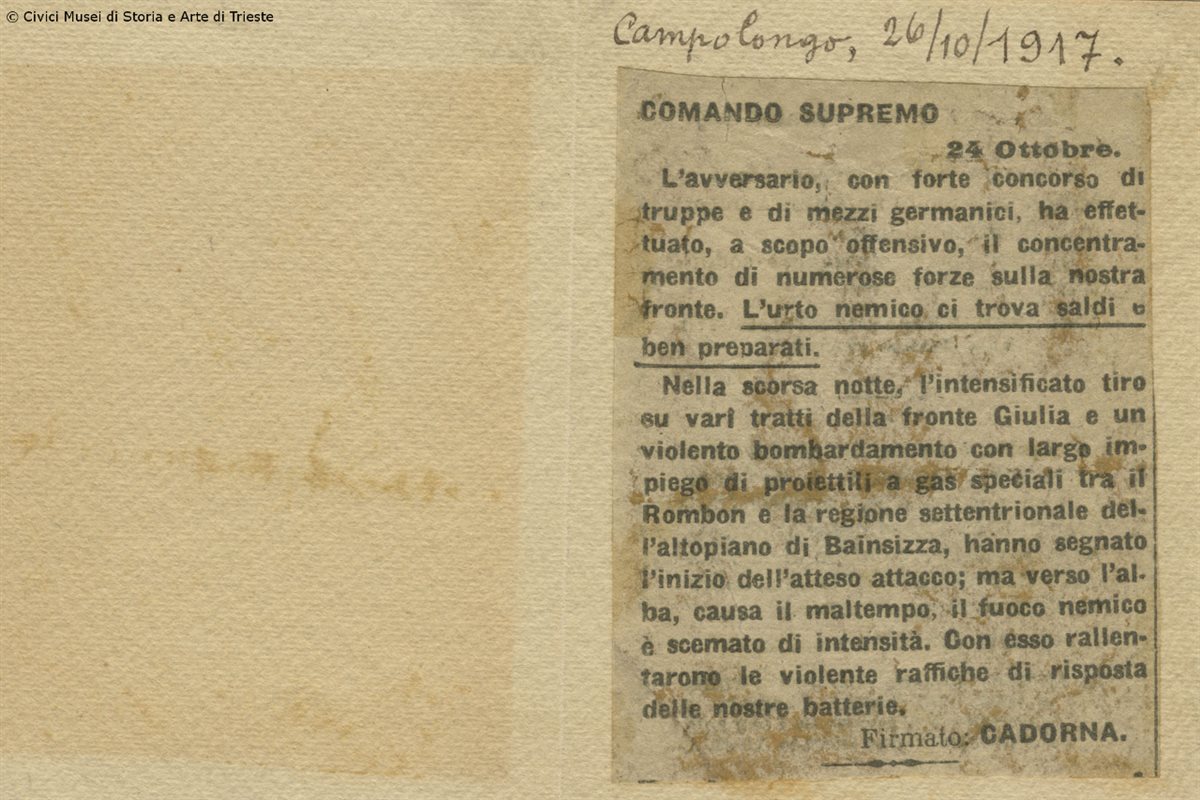 © Civici Musei di Storia e Arte di Trieste
Campolongo, 26/10/1917.
COMANDO SUPREMO
24 Ottobre.
L'avversario, con forte concorso di
truppe e di mezzi germanici, ha effet-
tuato, a scopo offensivo, il concentra-
mento di numerose forze sulla nostra
fronte. L'urto nemico ci trova saldi e
ben preparati.
Nella scorsa notte, l'intensificato tiro
su varî tratti della fronte Giulia e un
violento bombardamento con largo im-
piego di proiettili a gas speciali tra il
Rombon e la regione settentrionale del-
l'altopiano di Bainsizza, hanno segnato
l'inizio dell'atteso attacco; ma verso l'al-
ba, causa il maltempo, il fuoco nemico
è scemato di intensità. Con esso rallen-
tarono le violente raffiche di risposta
delle nostre batterie.
Firmato: CADORNA.